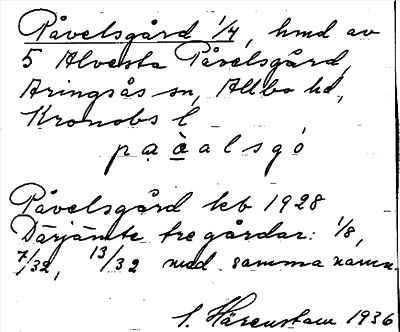 Påvelsgård 1/4, hmd av
5 Alvesta Påvelsgård,
Aringsås sn, Allbo hd,
Kronobs l
pạàalsgó
Påvelsgård leb 1928
Därjämte tre gårdar: 1/8,
7/32, 13/32 med samma namn.
S. Härenstam 1936